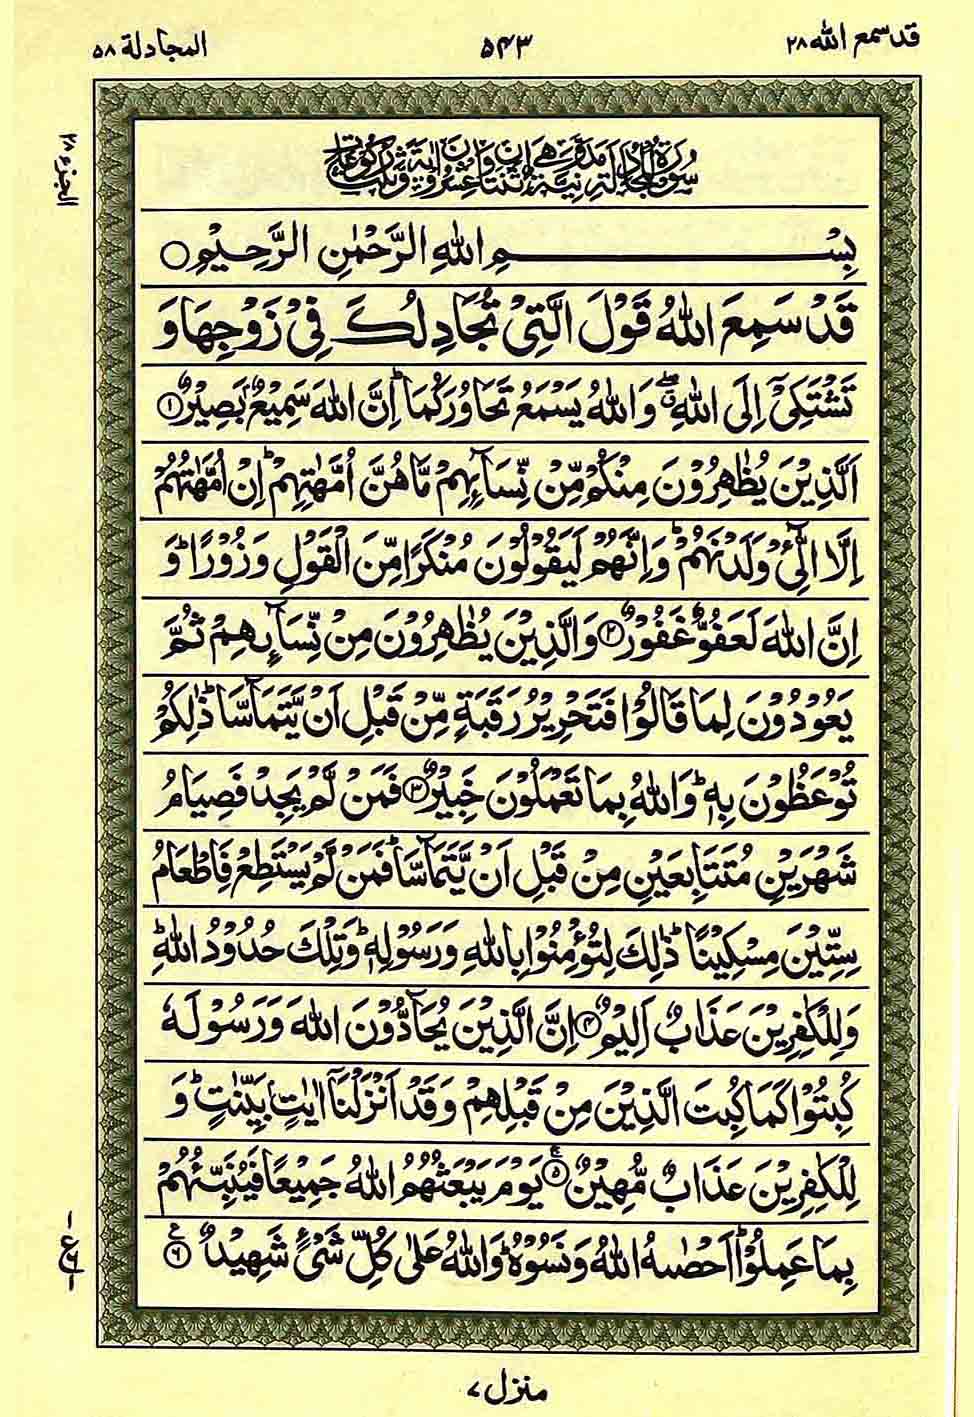 قد سمع الله ٢٨
٥٤٣
المجادلة ٥٨
الجزء ٢٨
سُوْرَةُ الْمُجَادَلَةِ مَدَنِيَّةٌ وَّهِيَ اثْنَتَانِ وَعِشْرُوْنَ اٰيَةً وَّثَلٰثُ رُكُوْعَاتٍ
بِسْمِ اللّٰهِ الرَّحْمٰنِ الرَّحِيْمِ ○
قَدْ سَمِعَ اللّٰهُ قَوْلَ الَّتِيْ تُجَادِلُكَ فِيْ زَوْجِهَا وَ
تَشْتَكِيْٓ اِلَى اللّٰهِ ۖۗ وَاللّٰهُ يَسْمَعُ تَحَاوُرَكُمَا ؕ اِنَّ اللّٰهَ سَمِيْعٌۢ بَصِيْرٌ ①
اَلَّذِيْنَ يُظٰهِرُوْنَ مِنْكُمْ مِّنْ نِّسَآىِٕهِمْ مَّا هُنَّ اُمَّهٰتِهِمْ ؕ اِنْ اُمَّهٰتُهُمْ
اِلَّا الّٰٓـِٔيْ وَلَدْنَهُمْ ؕ وَاِنَّهُمْ لَيَقُوْلُوْنَ مُنْكَرًا مِّنَ الْقَوْلِ وَزُوْرًا ؕ وَ
اِنَّ اللّٰهَ لَعَفُوٌّ غَفُوْرٌ ② وَالَّذِيْنَ يُظٰهِرُوْنَ مِنْ نِّسَآىِٕهِمْ ثُمَّ
يَعُوْدُوْنَ لِمَا قَالُوْا فَتَحْرِيْرُ رَقَبَةٍ مِّنْ قَبْلِ اَنْ يَّتَمَآسَّا ؕ ذٰلِكُمْ
تُوْعَظُوْنَ بِهٖ ؕ وَاللّٰهُ بِمَا تَعْمَلُوْنَ خَبِيْرٌ ③ فَمَنْ لَّمْ يَجِدْ فَصِيَامُ
شَهْرَيْنِ مُتَتَابِعَيْنِ مِنْ قَبْلِ اَنْ يَّتَمَآسَّا ؕ فَمَنْ لَّمْ يَسْتَطِعْ فَاِطْعَامُ
سِتِّيْنَ مِسْكِيْنًا ؕ ذٰلِكَ لِتُؤْمِنُوْا بِاللّٰهِ وَرَسُوْلِهٖ ؕ وَتِلْكَ حُدُوْدُ اللّٰهِ ؕ
وَلِلْكٰفِرِيْنَ عَذَابٌ اَلِيْمٌ ④ اِنَّ الَّذِيْنَ يُحَآدُّوْنَ اللّٰهَ وَرَسُوْلَهٗ
كُبِتُوْا كَمَا كُبِتَ الَّذِيْنَ مِنْ قَبْلِهِمْ وَقَدْ اَنْزَلْنَآ اٰيٰتٍۭ بَيِّنٰتٍ ؕ وَ
لِلْكٰفِرِيْنَ عَذَابٌ مُّهِيْنٌ ⑤ يَوْمَ يَبْعَثُهُمُ اللّٰهُ جَمِيْعًا فَيُنَبِّئُهُمْ
بِمَا عَمِلُوْا ؕ اَحْصٰىهُ اللّٰهُ وَنَسُوْهُ ؕ وَاللّٰهُ عَلٰى كُلِّ شَيْءٍ شَهِيْدٌ ⑥
منزل ٧